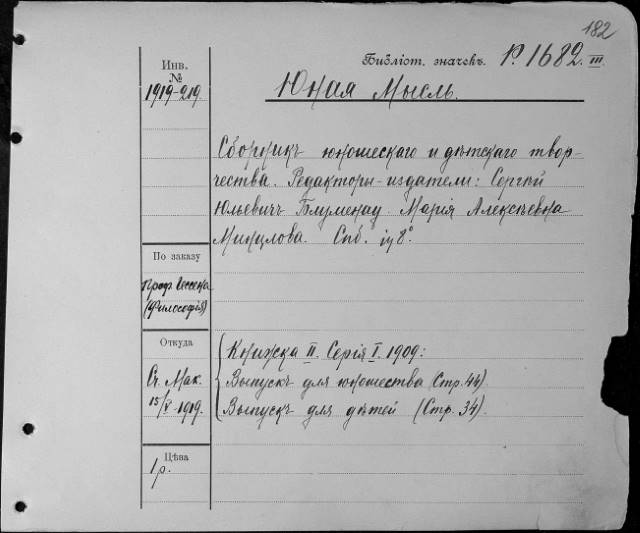 182
Инв. №
1919-219.
Библіот. значекъ. Р. 1682. III
Юная Мысль.
Сборникъ юношескаго и дѣтскаго твор-
чества. Редакторы-издатели: Сергѣй
Юльевичъ Блуменау. Марія Алексѣевна
Минцлова. Спб. in 8°
По заказу
проф. Гессена
(Философія)
Откуда
Сч. Мак.
15/V-1919.
Книжка II. Серія I. 1909:
Выпускъ для юношества (Стр. 44).
Выпускъ для дѣтей (Стр. 34).
Цѣна
1 р.